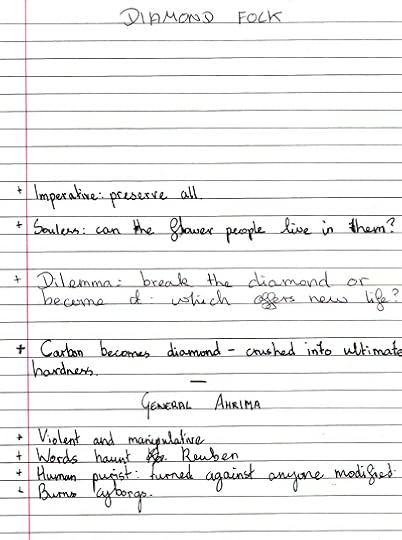 DIAMOND FOLK
+ Imperative: preserve all.
+ Souless: can the flower people live in them?
+ Dilemma: break the diamond or
become it: which offers new life?
+ Carbon becomes diamond - crushed into ultimate
hardness.
—
GENERAL AHRIMA
+ Violent and manipulative
+ Words haunt Reuben
+ Human purist: turned against anyone modified.
+ Burns cyborgs.